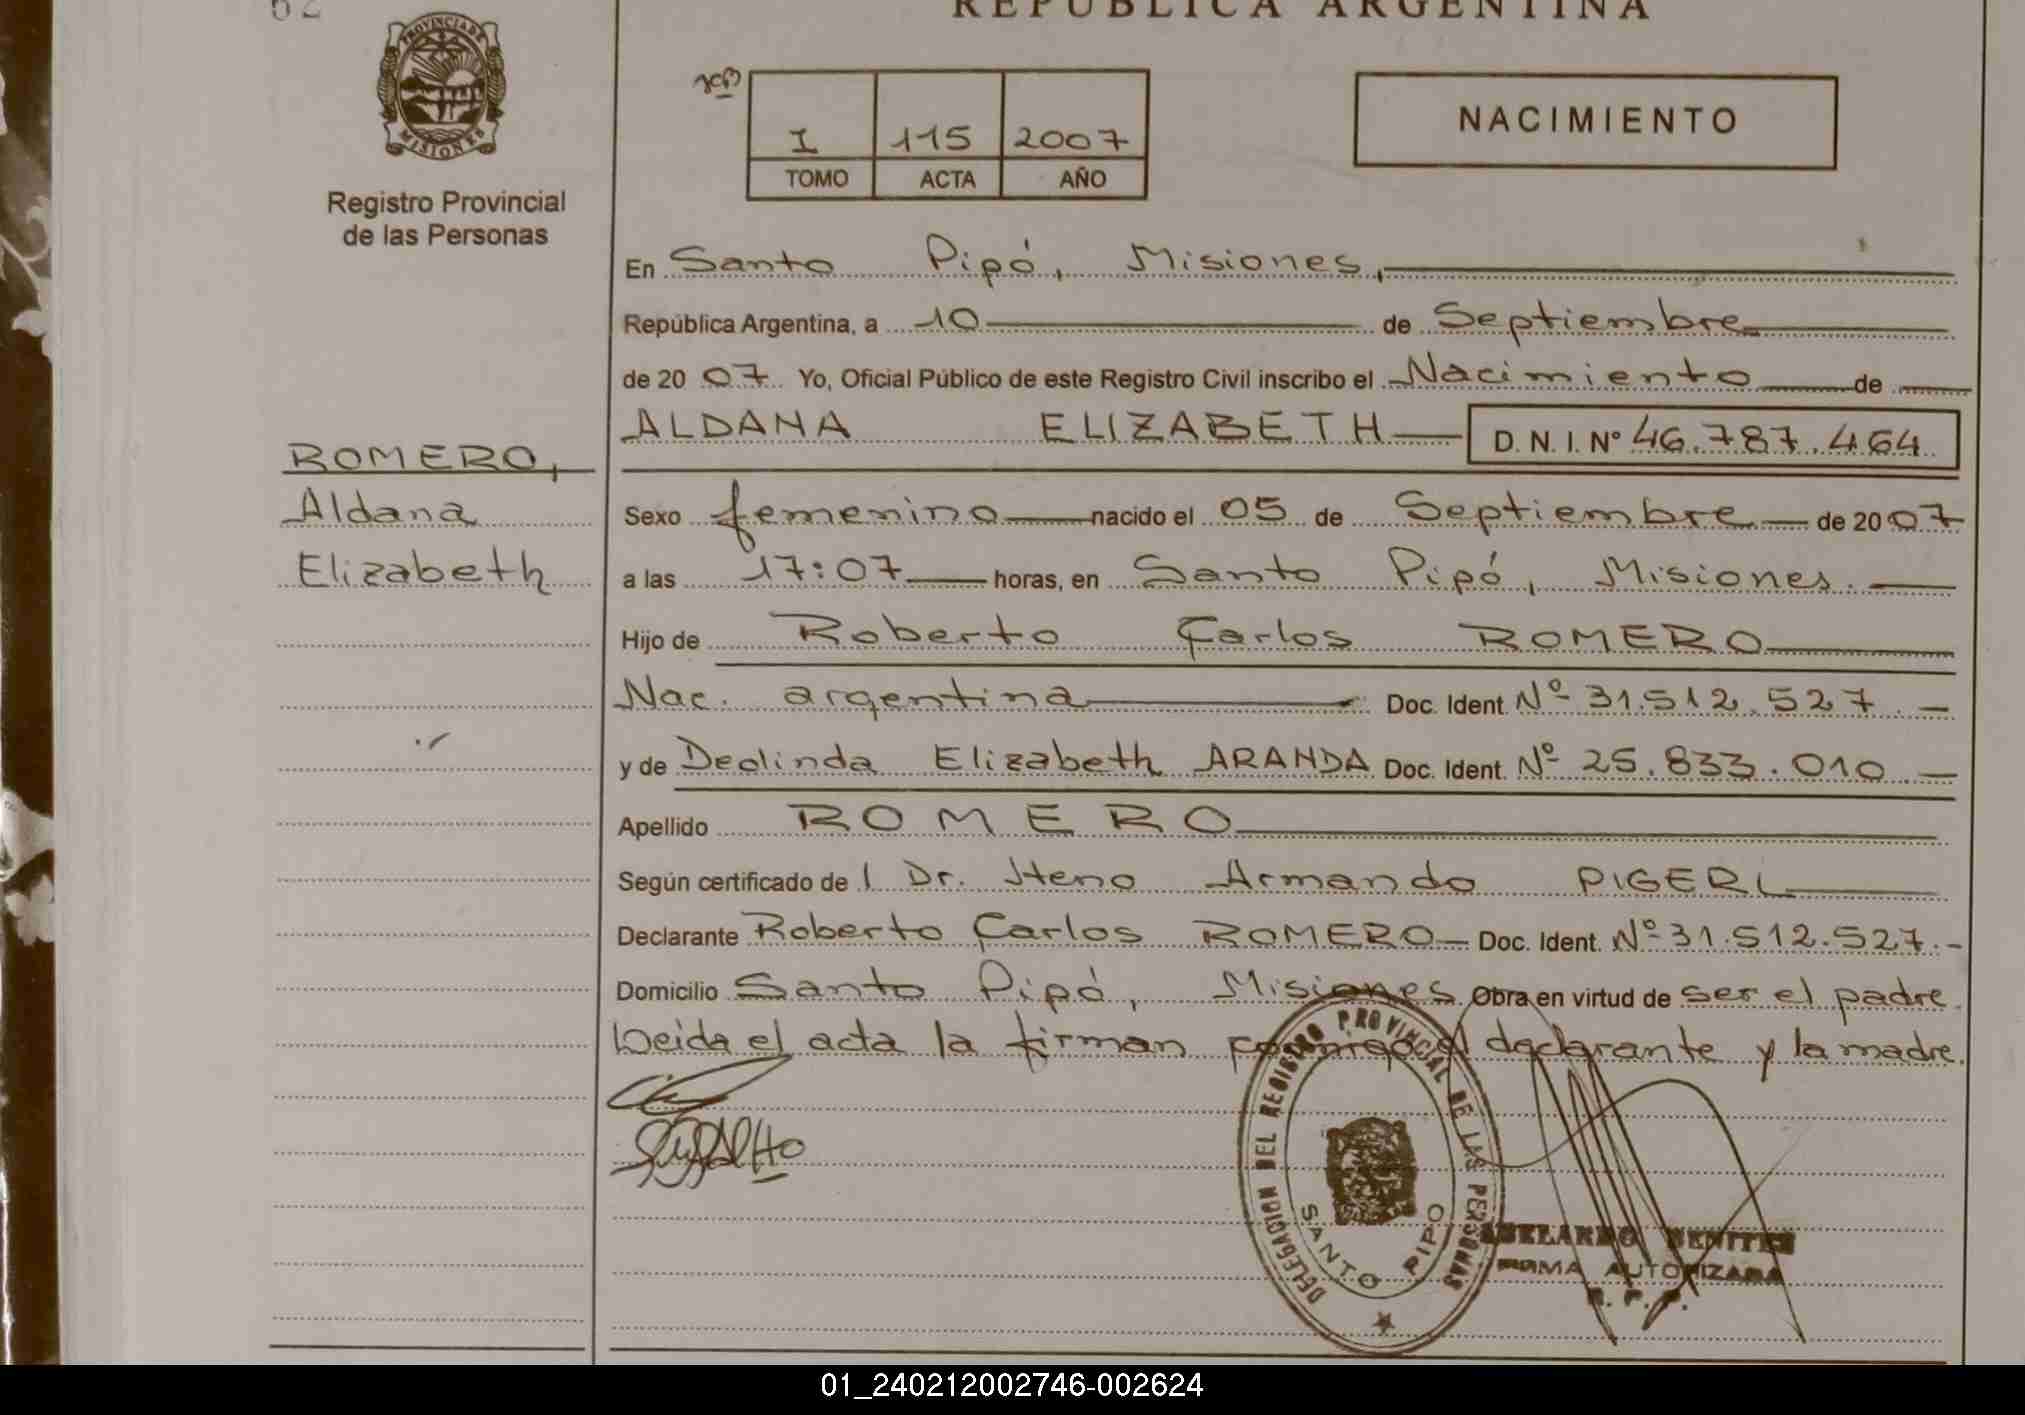 62
REPUBLICA ARGENTINA
PROVINCIA DE
MISIONES
Registro Provincial
de las Personas
I 115 2007
TOMO ACTA AÑO
NACIMIENTO
En Santo Pipó, Misiones,
República Argentina, a 10 de Septiembre
de 20 07 Yo, Oficial Público de este Registro Civil inscribo el Nacimiento de
ALDANA ELIZABETH D. N. I. Nº 46.787.464
ROMERO,
Aldana
Elizabeth
Sexo femenino nacido el 05 de Septiembre de 20 07
a las 17:07 horas, en Santo Pipó, Misiones.
Hijo de Roberto Carlos ROMERO
Nac. argentina Doc. Ident. Nº 31.512.527
y de Deolinda Elizabeth ARANDA Doc. Ident. Nº 25.833.010
Apellido ROMERO
Según certificado de l Dr. Armando
Declarante Roberto Carlos ROMERO Doc. Ident. Nº 31.512.527.-
Domicilio Santo Pipó, Misiones Obra en virtud de ser el padre.
Leida el acta la firman conmigo el declarante y la madre.
DELEGACION DEL REGISTRO PROVINCIAL DE LAS PERSONAS
SANTO PIPO
ABELARDO BENITEZ
FIRMA AUTORIZADA
R. P. P.
01_240212002746-002624